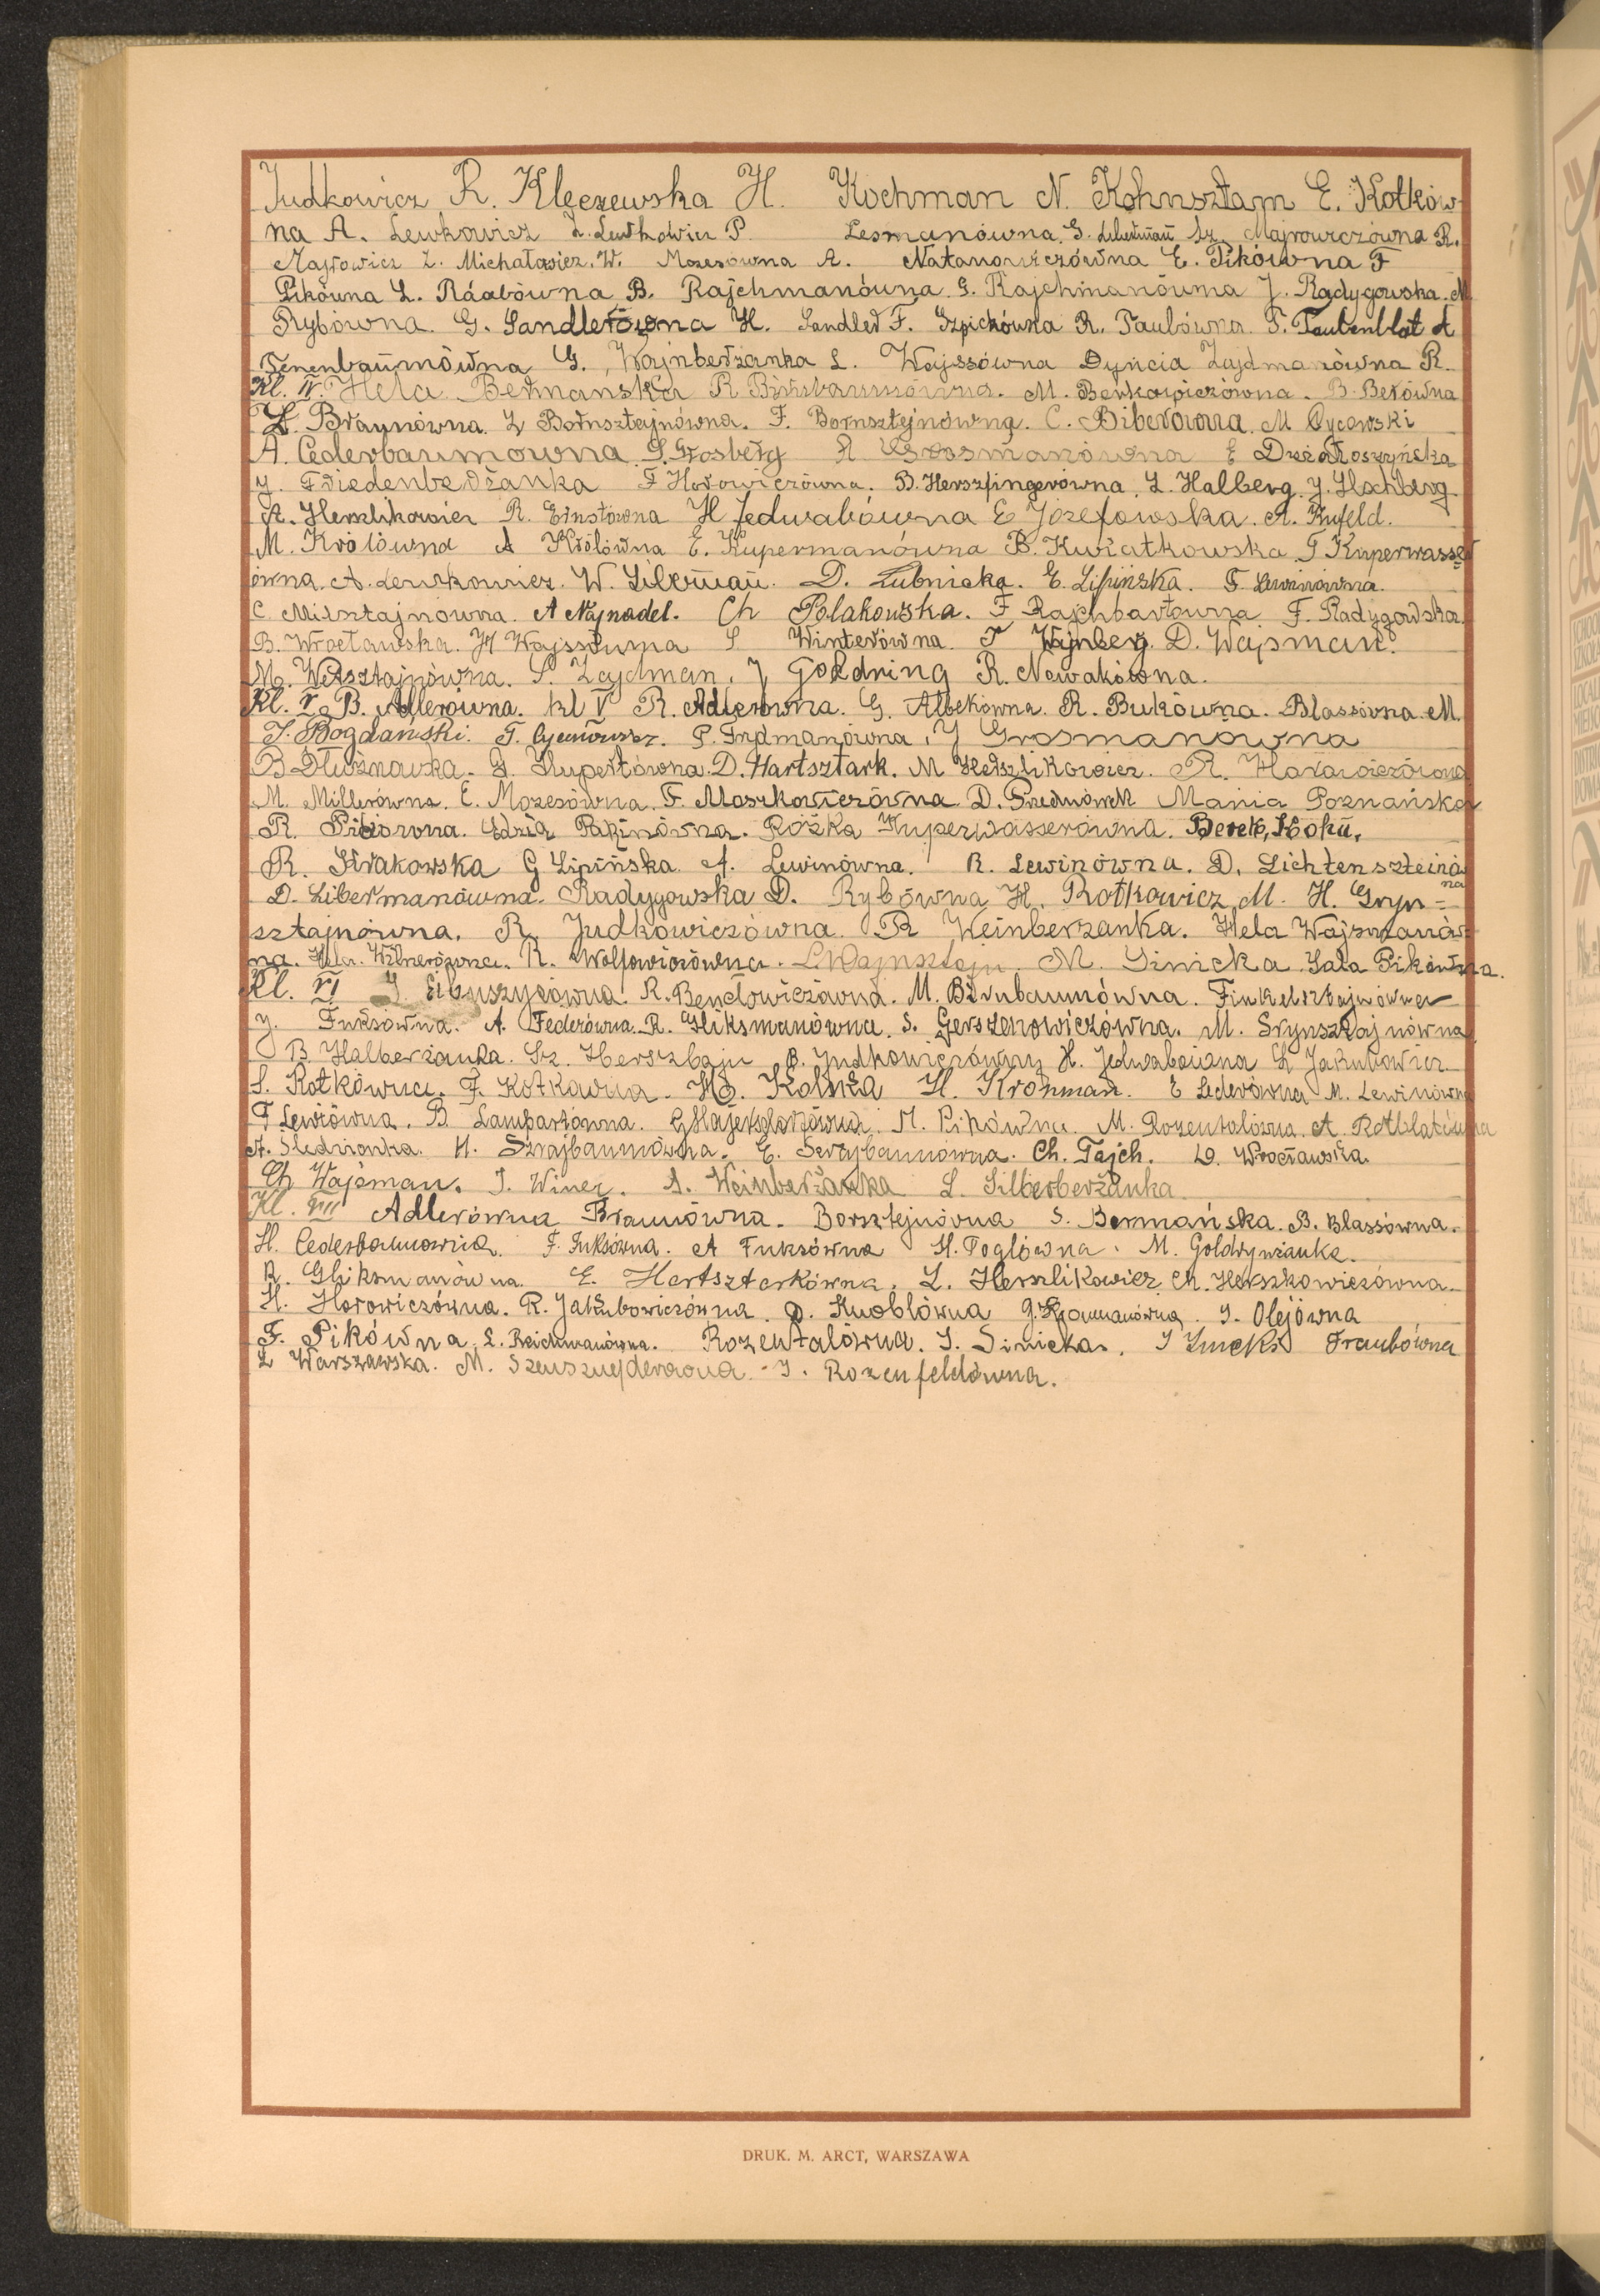 Judkowicz R. Kleczewska H. Kochman N. Kohnsztam E. Kotków-
na A. Lewkowicz Z. Lewkowicz P Lesmanówna. G. Liberman Sz. Majrowiczówna R.
Majrowicz Z. Michałowicz. W. Mozesówna A. Natanowiczówna E. Pikówna F
Pikówna L. Raabówna B. Rajchmanówna. G. Rajchmanówna J. Radygowska. M.
Rybówna. G. Sandlerówna H. Sandler F. Szpickówna R. Taubówna. T. Taubenblat A
Tenenbaumówna G., Wajnberżanka L. Wajssówna Dyńcia Zajdmanówna R.
Kl. IV. Hela Bermańska R Birnbaumówna. M. Berkowiczówna. B. Berówna
H. Braunówna. Z Bornsztajnówna. F. Bornsztejnówna. C. Biberówna. M Cycowski
A. Cederbaumowna. S. Grosberg R Grosmanówna E
J. Friedenberżanka F Horowiczówna. B. Herszfingerówna, L. Halberg. J.
A. Herszlikowicz R. Ernstówna H Jedwabówna E Józefowska. A. Kufeld.
M. Królówna A Królówna E. Kupermanówna B. Kwiatkowska T Kuperwasser
ówna. A. Lewkowicz. W. Liberman. D. Lubnicka. E. Lipińska. F. Lewinówna.
C. Milsztajnówna. A Najnadel. Ch Polakowska. F Rajchbartówna F. Radygowska.
B. Wrocławska. H Wajssówna S Winterówna. T Wajnberg. D. Wajsman.
M. Wetsztajnówna. S. Zajdman. J Goldring R. Nowakówna.
Kl. V. B. Adlerówna. kl V R. Adlerówna. G. Albekówna. R. Bukówna. Blassówna M.
I. Bogdański. P. Frydmanówna, J Grosmanówna
B Dłużnowska. G. Hupertówna. D. Hartsztark. M Herszlikowicz. R. Horowiczówna
M. Millerówna. E. Mozesówna. F. Moszkowiczówna D. Przednówek Mania Poznańska
R. Edzia Różka Kuperwasserówna. Berek,
R. Krakowska G Lipińska A. Lewinówna. R. Lewinówna. D. Lichtenszteinów
na
D. Libermanówna. Radygowska D. Rybówna H. Rotkowicz M. H. Gryn=
sztajnówna. R. Judkowiczówna. R Weinberzanka. Hela Wajzmanów-
na. Hela. Wilnerówna. R. Wolfowiczówna. L. Wajnsztejn. M. Sinicka. Sala Pikówna.
Kl. VI J. Eibuszycówna. R. Bendowiczówna. M. Birnbaumówna. Finkelsztajnówna
J. Fuksówna. A. Federówna. R. Gliksmanówna. S. Gerszonowiczówna. M. Grynsztajnówna
B. Halberżanka. Sz. Herszbajn B. Judkowiczówna H. Jedwabówna L Jakubowicz.
S. Kotkówna. F. Kotkówna. H. Kolska H. Krohman. E Lederówna M. Lewinówna
F Lewiówna. B Lampartówna. M. Pikówna. M. Rozentalówna. A Rotblatówna
A. Śledziówka. H. Szrajbaumówna. E. Szrajbaumówna. Ch. Tajch. D. Wrocławska.
Ch Wajsman. I. Winer. A. Weinberżanka L. Silberberżanka
Kl. VII Adlerówna Braunówna. Borsztejnówna S. Bermańska. B. Blassówna.
H. Cederbaumówna. F. Fuksówna. A Fuksówna H. Foglówna. M. Goldrynżanka.
R. Gliksmanówna. E. Hartsztarkówna. L. Herszlikowicz, Ch. Herszkowiczówna.
H. Horowiczówna. R. Jakubowiczówna D. Knoblówna G. I. Olejówna
F. Pikówna. L. Reichmanówna. Rozentalówna. I. Sinicka. Traubówna
L Warszawska. M. Szensznejderówna. I. Rozenfeldówna.
DRUK. M. ARCT, WARSZAWA